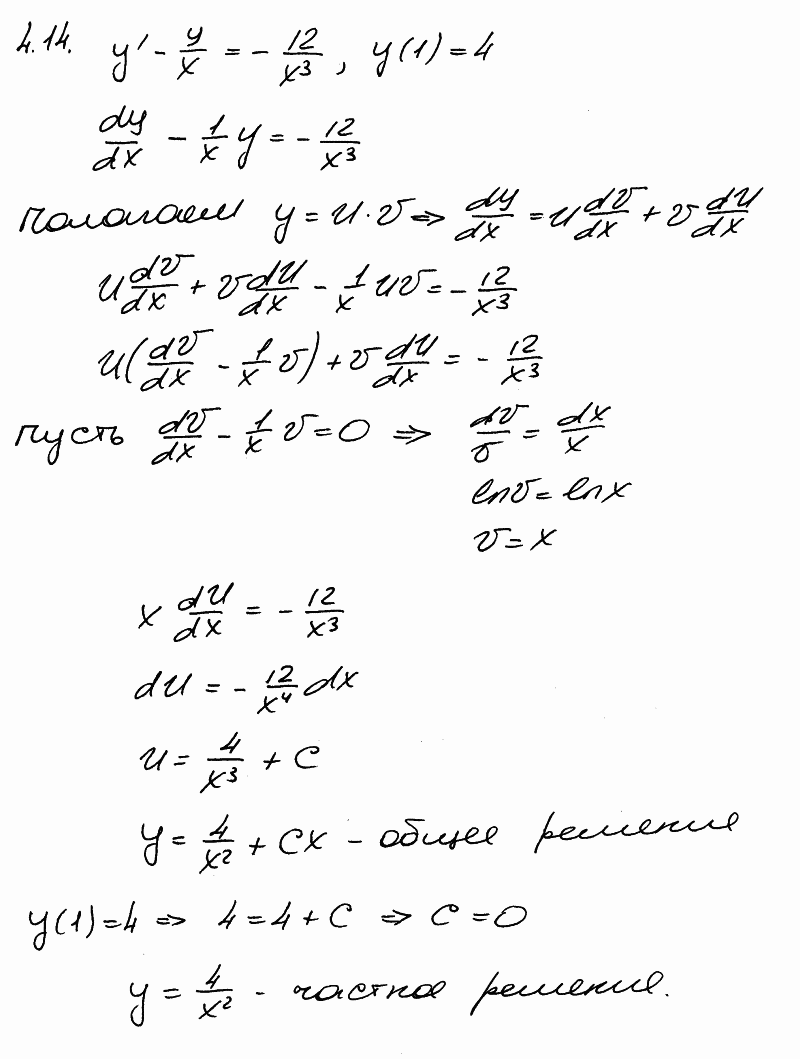 4.14. y' - y/x = - 12/x³, y(1) = 4
dy/dx - 1/x y = - 12/x³
полагаем y = u·v ⇒ dy/dx = u dv/dx + v du/dx
u dv/dx + v du/dx - 1/x uv = - 12/x³
u(dv/dx - 1/x v) + v du/dx = - 12/x³
пусть dv/dx - 1/x v = 0 ⇒ dv/v = dx/x
ln v = ln x
v = x
x du/dx = - 12/x³
du = - 12/x⁴ dx
u = 4/x³ + C
y = 4/x² + Cx - общее решение
y(1) = 4 ⇒ 4 = 4 + C ⇒ C = 0
y = 4/x² - частное решение.